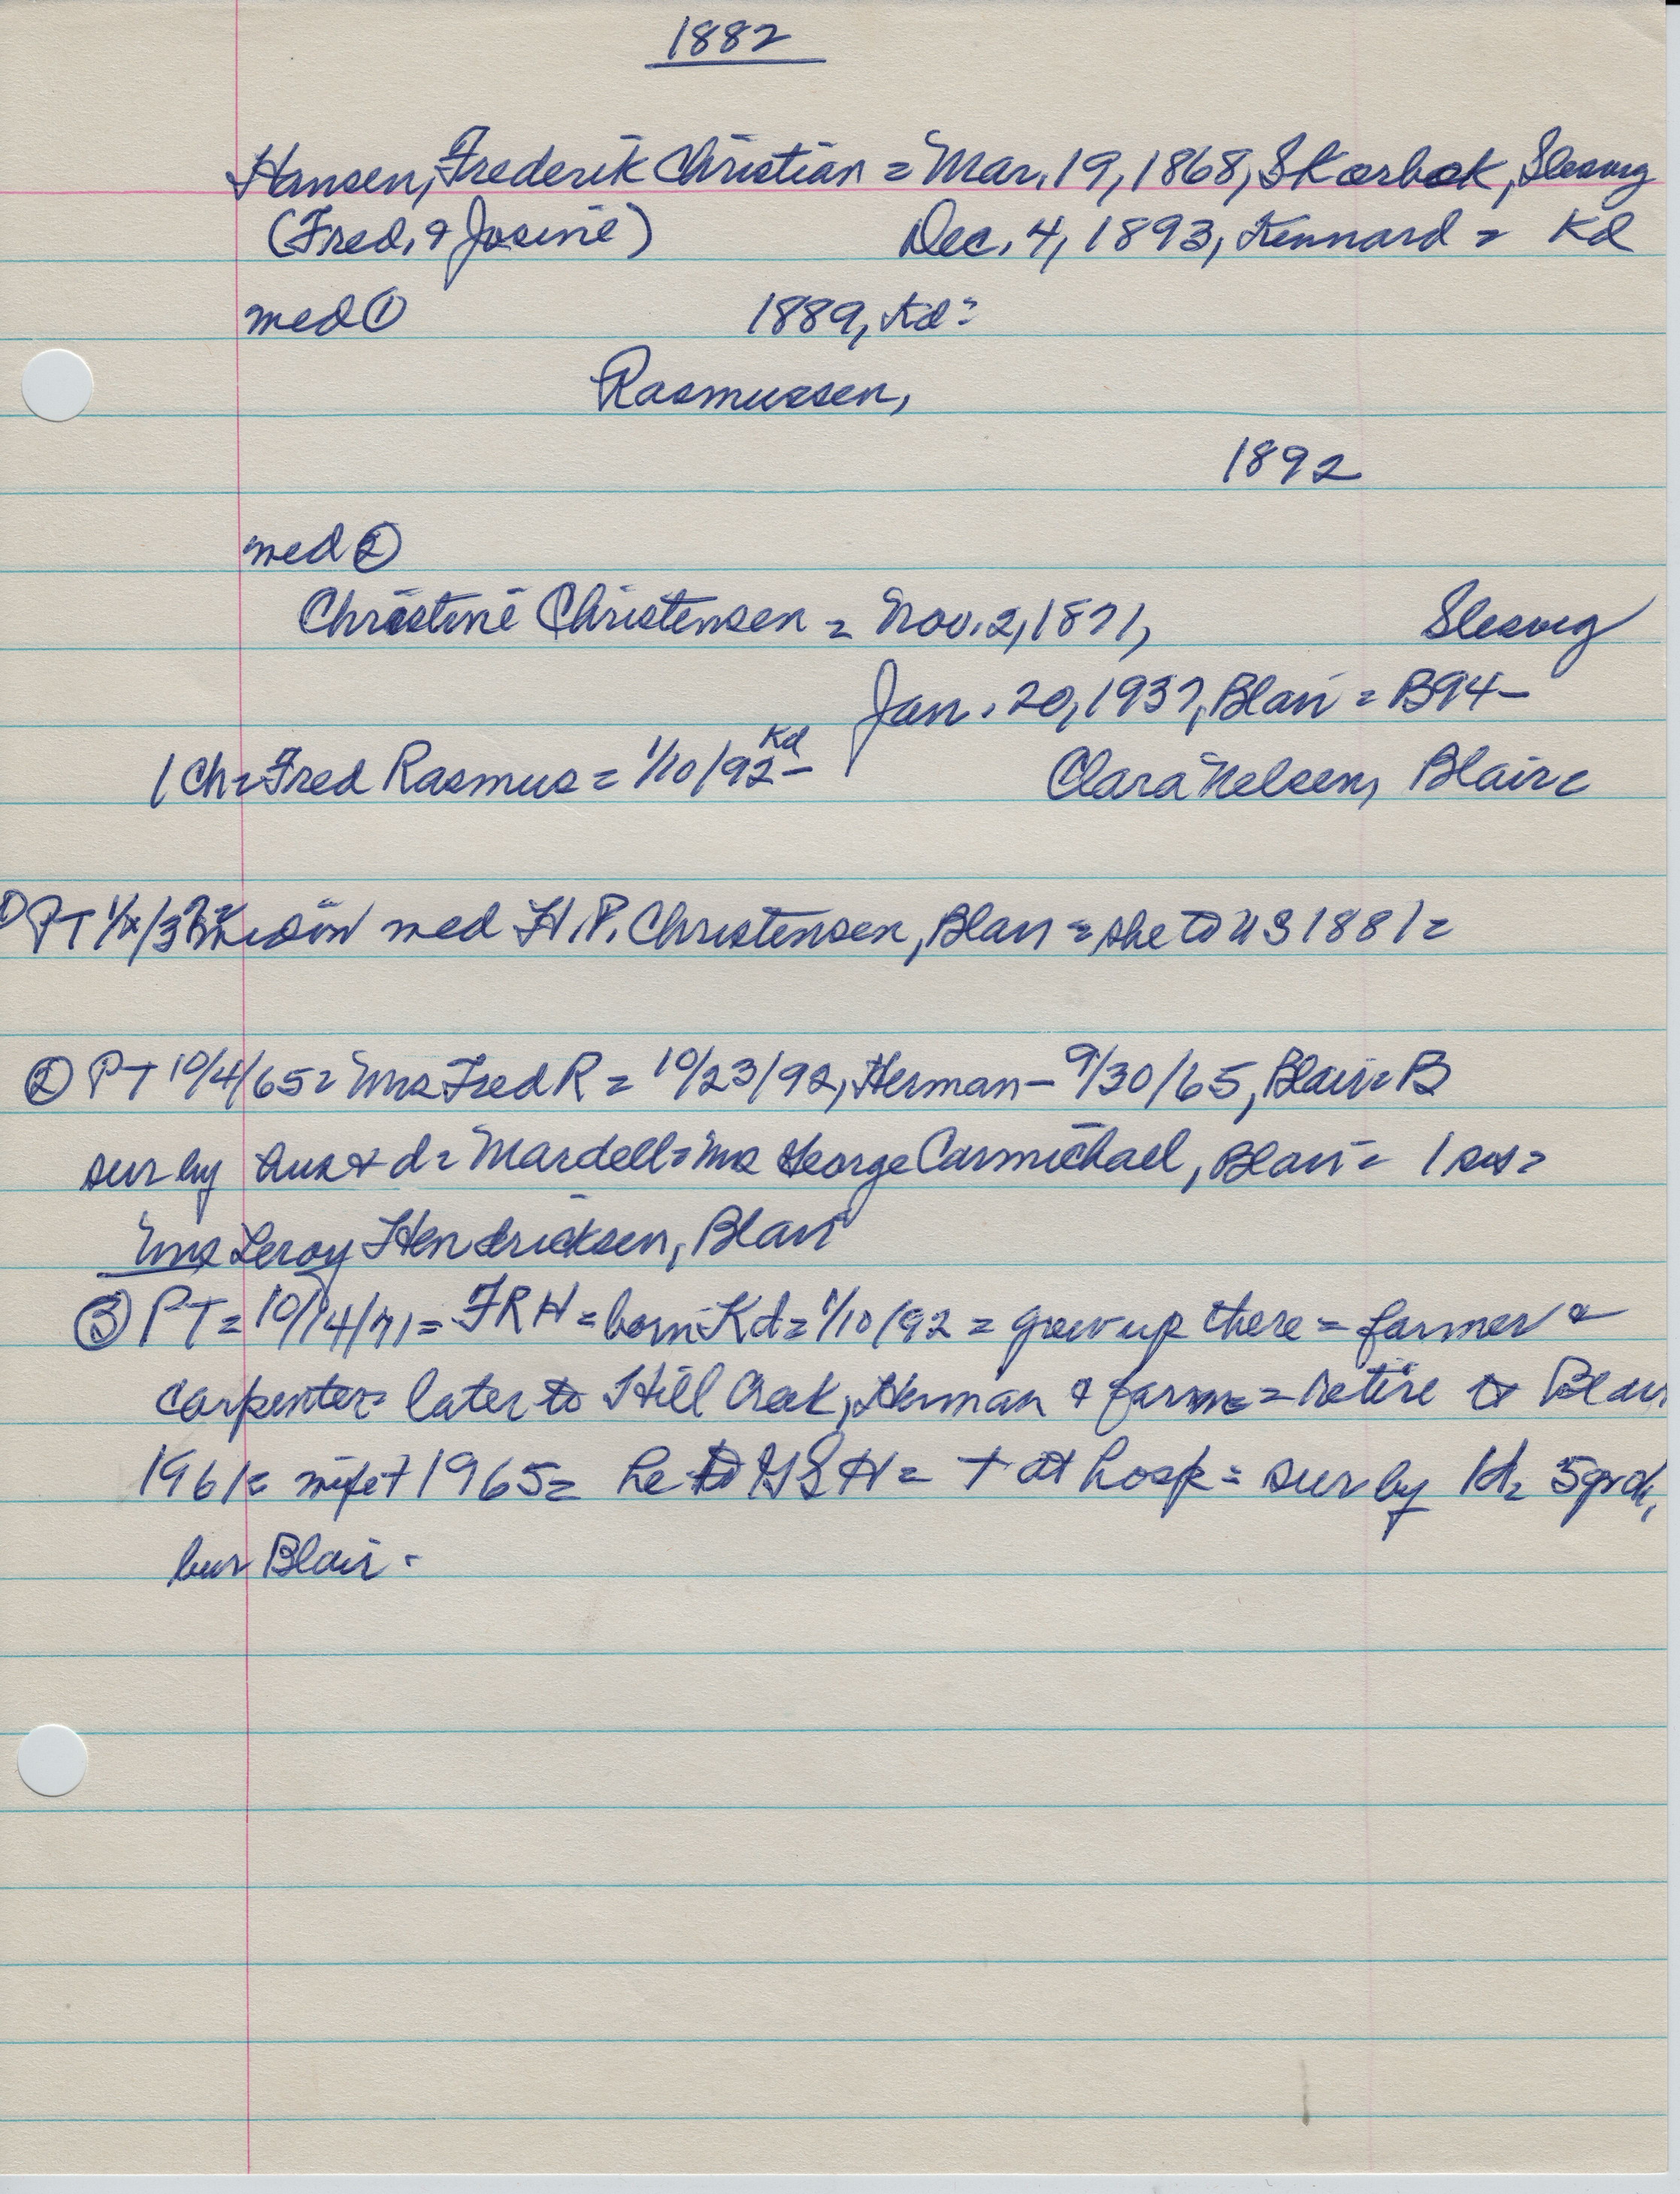 1882
Hansen, Frederik Christian = Mar. 19, 1868, Skærbæk, Slesvig
(Fred. & Josine) Dec. 4, 1893, Kennard = Kd
med ① 1889, Kd =
Rasmussen,
1892
med ②
Christine Christensen = Nov. 2, 1871, Slesvig
Jan. 20, 1937, Blair = B94 -
Kd
1 Ch = Fred Rasmus = 1/10/92 - Clara Nelsen, Blair =
① PT med H.P. Christensen, Blair = she to US 1881 =
② PT 10/4/65 = Mrs Fred R = 10/23/92, Herman - 9/30/65, Blair = B
sur by hus & d = Mardell = Mrs George Carmichael, Blair = 1 sis =
Mrs Leroy Hendricksen, Blair
③ PT = 10/14/71 = FRH = born Kd = 1/10/92 = grew up there = farmer &
carpenter = later to Hill Creek, Herman & farm = retire to Blair
1961 = wife + 1965 = he to + at hosp = sur by 1d, 5 grch,
bur Blair.